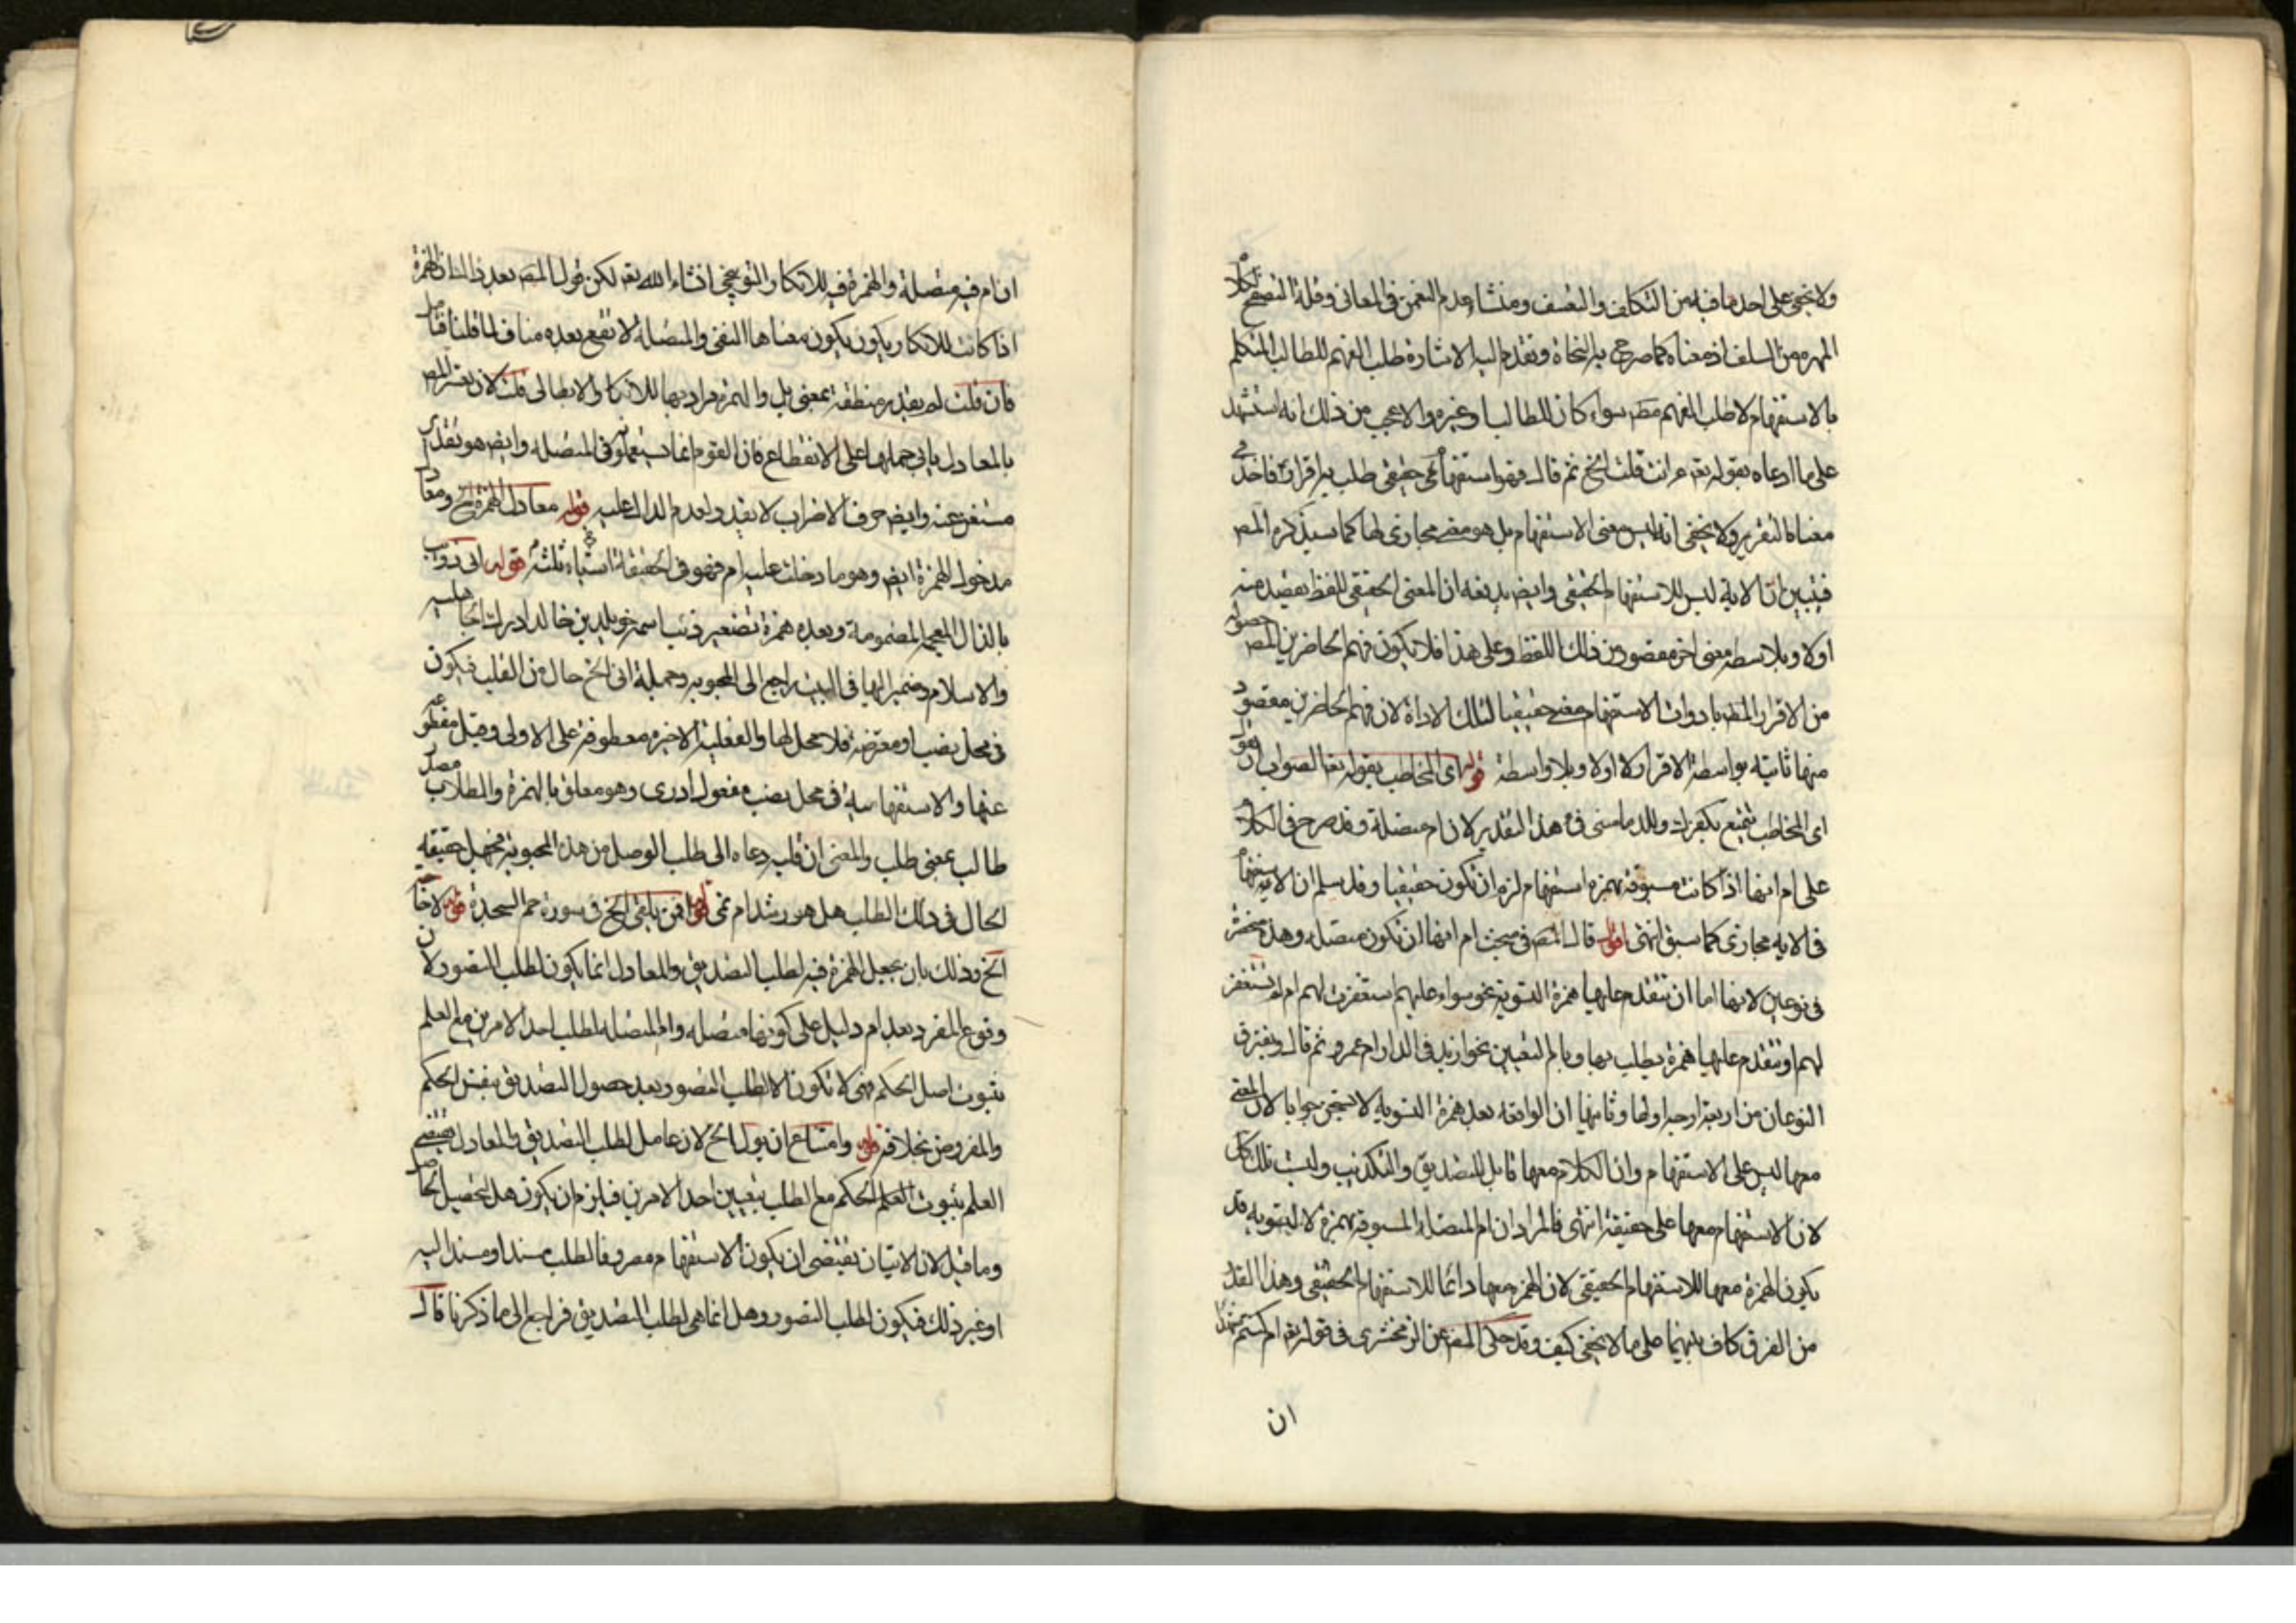 ولا يخفى على احد ما فيه من التكلف والتعسف ومنشاء عدم التعمق في المعانى وقلة التصفح لكلام
المهرة من السلف اذ معناه كما صرح به النحاة وتقدم اليه الاشارة طلب الفهم للطالب المتكلم
بالاستفهام لا طلب الفهم مطـ سواء كان للطالب او غيره والاعجب من ذلك انه استشهد
على ما ادعاه بقوله تعـ ءانت قلت الخ ثم قال فهو استفهام حقيقى طلب به اقراره فاخذ في
معناه التقرير ولا يخفى انه ليس معنى الاستفهام بل هو معنى مجازى لها كما سيذكره المصـ
فتبين ان الاية ليس للاستفهام الحقيقى وايضـ يدفعه ان المعنى الحقيقى للفظ يقصد منه
اولا وبلا واسطه معنى اخر مقصود من ذلك اللفظ وعلى هذا فلا يكون فهم الحاضرين
من الاقرار المطـ بادوات الاستفهام معنى حقيقيا لتلك الاداة لان فهم الحاضرين مقصود
منها ثانية بواسطة الاقرار لا اولا وبلا واسطة قوله اى المخاطب بقوله تعا الصواب ان يقول
اى المخاطب بتمتع بكفرك والدمامينى في هذا التقدير لان ام متصلة وقد صرح في الكلام
على ام انها اذا كانت مسبوقة بهمزة استفهام لزم ان تكون حقيقيا وقد سلم ان الاستفهام
في الاية مجازى كما سبق انتهى اقول قال المصـ في مبحث ام انها ان تكون متصله وهذه منحصرة
في نوعين لانها اما ان تتقدم عليها همزة التسوية نحو سواء عليهم استغفرت لهم ام لم تستغفر
لهم او تتقدم عليها همزة يطلب بها وبام التعيين نحو ازيد في الدار ام عمرو ثم قال ويفترق
النوعان من اربعة اوجه اولها وثانيها ان الواقعه بعد همزة التسويه لا تستحق جوابا لان المعنى
معها ليس على الاستفهام وان الكلام معها قابل للتصديق والتكذيب وليست تلك كذلك
لان الاستفهام معها على حقيقته انتهى فالمراد ان ام المتصلة المسبوقه بهمزة لا لتسويه قد
يكون الهمزة معها للاستفهام الحقيقى لان الهمزة معها دائما للاستفهام الحقيقى وهذا القدر
من الفرق كاف بينهما على ما لا يخفى كيف وقد حكى المصـ عن الزمخشرى في قوله تعـ ام كنتم شهداء
ان
ان ام فيه متصلة والهمزة فيه للانكار والتوبيخى انشاء الله تعـ لكن قول المصـ بعد ذلك ان الهمزة
اذا كانت للانكار يكون معناها النفى والمتصله لا تقع بعده مناف لما قلنا فتأمل
فان قلت لم يقدر منقطعة بمعنى بل والهمزة مراد بها للانكار الابطالى قلت لان تعبير المصـ
بالمعادل يابى حملها على الانقطاع فان القوم انما يستعملونه في المتصله وايضـ هو تقدير
مستغن عنه وايضـ حرف الاضراب لا يقدر لعدم الدال عليه قوله معادل الهمزة الخ ومعادل
مدخول الهمزة ايضـ وهو ما دخلت عليه ام فهو في الحقيقة اشياء ثلثة قوله ابى ذويب
بالذال المعجمة المضمومة وبعده همزة تصغير ذئب اسمه خويلد بن خالد ادرك الجاهلية
والاسلام وضمير اليها في البيت راجع الى المحبوبه وجملة انى الخ حال من القلب فيكون
في محل نصب او معترضة فلا محل لها والفعلية الاخيره معطوفة على الاولى وقيل مقطوعة
عنها والاستفهاميه في محل نصب مفعول ادرى وهو معلق بالهمزة والطلاب مصدر
طالب بمعنى طلب والمعنى ان قلبه دعاه الى طلب الوصل من هذه المحبوبة فجهل حقيقة
الحال في ذلك الطلب هل هو رشد ام غى قوله افمن يلقى الخ في سورة حم السجدة قوله لا حاجة
الخ وذلك بان يجعل الهمزة فيه لطلب التصديق والمعادل انما يكون لطلب التصور لان
وقوع المفرد بعد ام دليل على كونها متصله وام المتصله لطلب احد الامرين مع العلم
بثبوت اصل الحكم فهى لا تكون الا لطلب التصور بعد حصول التصديق بنفس الحكم
والمفروض بخلافه قوله وامتناع ان يول الخ لان عامل لطلب التصديق والمعادل يقتضى
العلم بثبوت الحكم مع الطلب بتعيين احد الامرين فيلزم ان يكون هل لتحصيل الحاصل
وما قيل لان الاتيان يقتضى ان يكون الاستفهام مصروفا لطلب مسند او مسند اليه
او غير ذلك فيكون لطلب التصور وهل انما هى لطلب التصديق فراجع الى ما ذكرنا قال